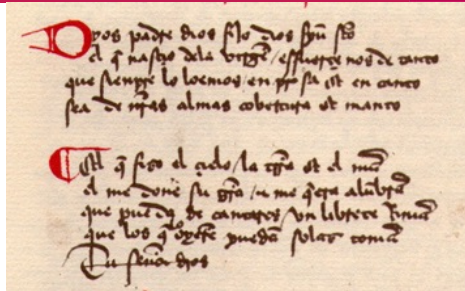 Dyos padre dios fijo dios spũ sto
el q̃ nasçio dela virgẽ / esfuerçe nos de tanto
que sienpre lo loemos / en prosa et en canto
sea de nr̃as almas cobertura et manto
El q̃ fizo el çielo / la trr̃a et el mar̃
el me done su grã / τ me q̃era alũbrar̃
que pueda de cantares vn librete Rimar̃
que los q̃ lo oyerẽ puedã solaz tomar̃
Tu señor dios